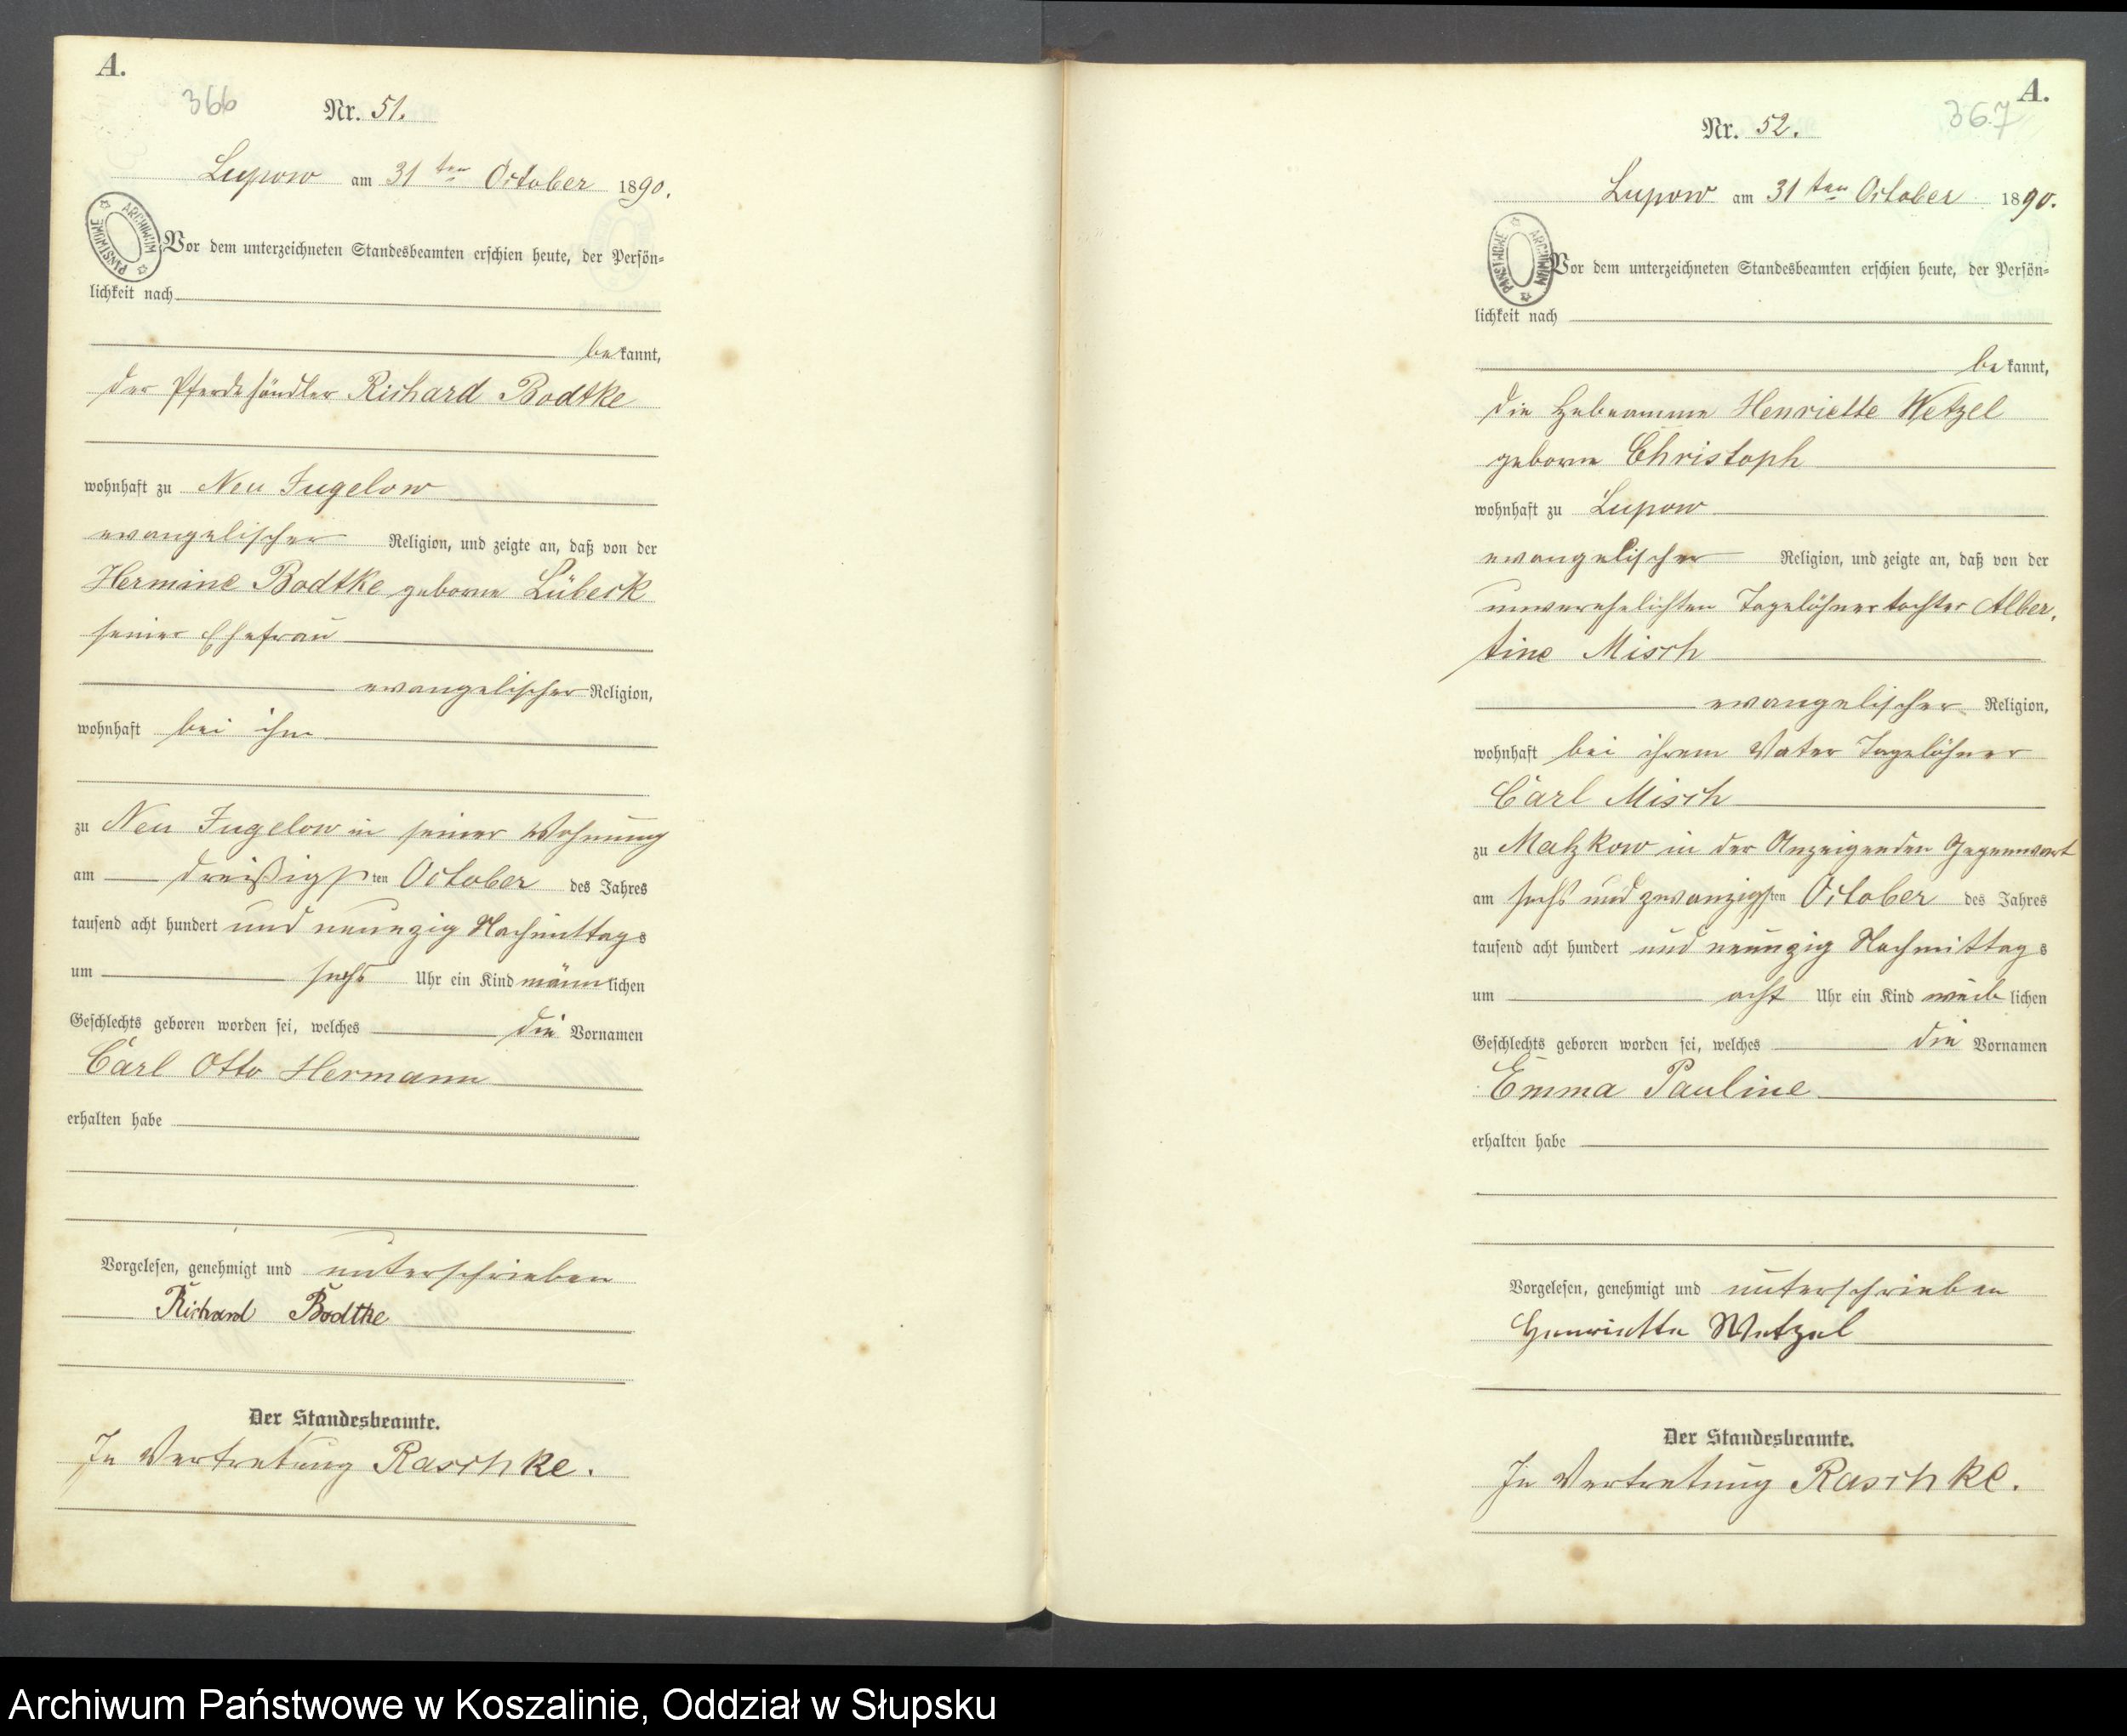 A.
366
Nr. 51.
Lupow am 31ten October 1890.
ARCHIWUM PAŃSTWOWE
Vor dem unterzeichneten Standesbeamten erschien heute, der Persön-
lichkeit nach
bekannt,
der Pferdehändler Richard Bodtke
wohnhaft zu Neu Jugelow
evangelischer Religion, und zeigte an, daß von der
Hermine Bodtke geborne Lübeck
seiner Ehefrau
evangelischer Religion,
wohnhaft bei ihm
zu Neu Jugelow in seiner Wohnung
am dreißigsten October des Jahres
tausend acht hundert und neunzig Nachmittags
um sechs Uhr ein Kind männlichen
Geschlechts geboren worden sei, welches die Vornamen
Carl Otto Hermann
erhalten habe
Vorgelesen, genehmigt und unterschrieben
Richard Bodtke
Der Standesbeamte.
In Vertretung Raschke.
A.
367
Nr. 52.
Lupow am 31ten October 1890.
ARCHIWUM PAŃSTWOWE
Vor dem unterzeichneten Standesbeamten erschien heute, der Persön-
lichkeit nach
bekannt,
die Hebeamme Henriette Wetzel
geborne Christoph
wohnhaft zu Lupow
evangelischer Religion, und zeigte an, daß von der
unverehelichten Tagelöhnertochter Alber-
tine Misch
evangelischer Religion,
wohnhaft bei ihrem Vater Tagelöhner
Carl Misch
zu Malzkow in der Anzeigenden Gegenwart
am sechs und zwanzigsten October des Jahres
tausend acht hundert und neunzig Nachmittags
um acht Uhr ein Kind weiblichen
Geschlechts geboren worden sei, welches die Vornamen
Emma Pauline
erhalten habe
Vorgelesen, genehmigt und unterschrieben
Henriette Wetzel
Der Standesbeamte.
In Vertretung Raschke.
Archiwum Państwowe w Koszalinie, Oddział w Słupsku